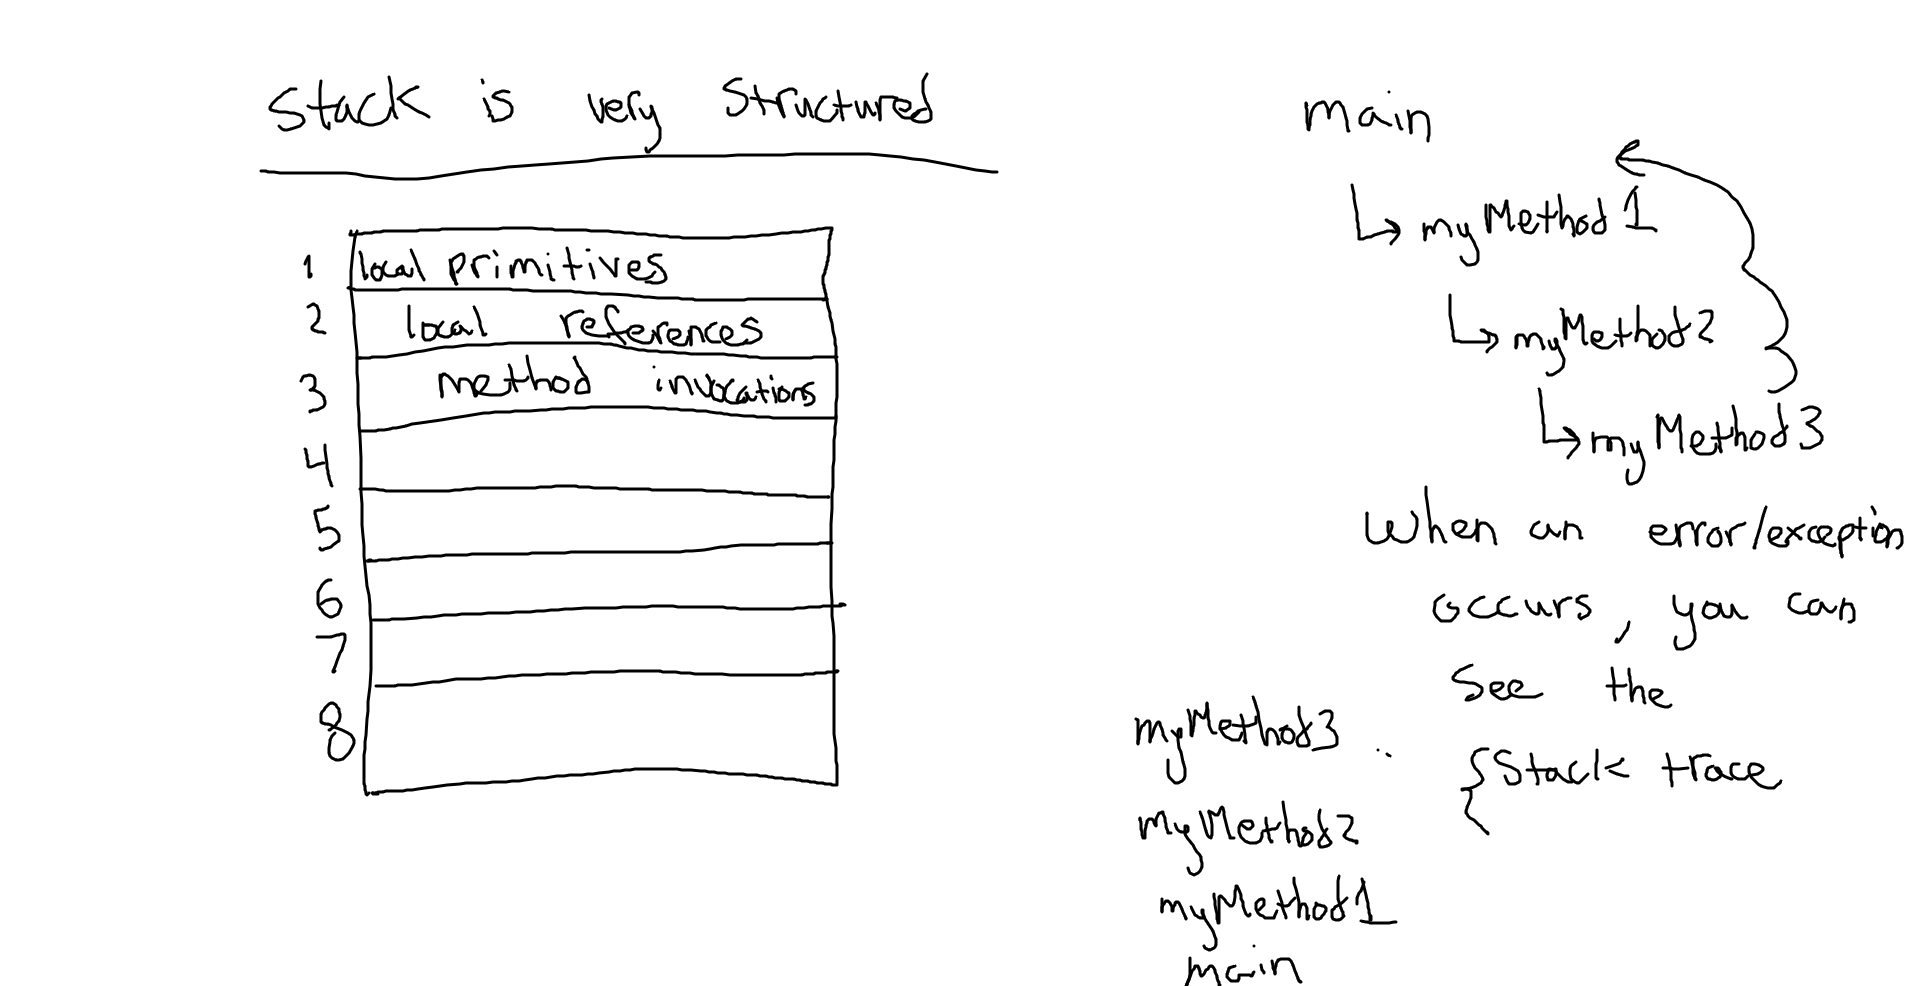 Stack is very Structured
1 local primitives
2 local references
3 method invocations
4
5
6
7
8
main
myMethod1
myMethod2
myMethod3
When an error/exception
occurs, you can
See the
Stack trace
myMethod3
myMethod2
myMethod1
main